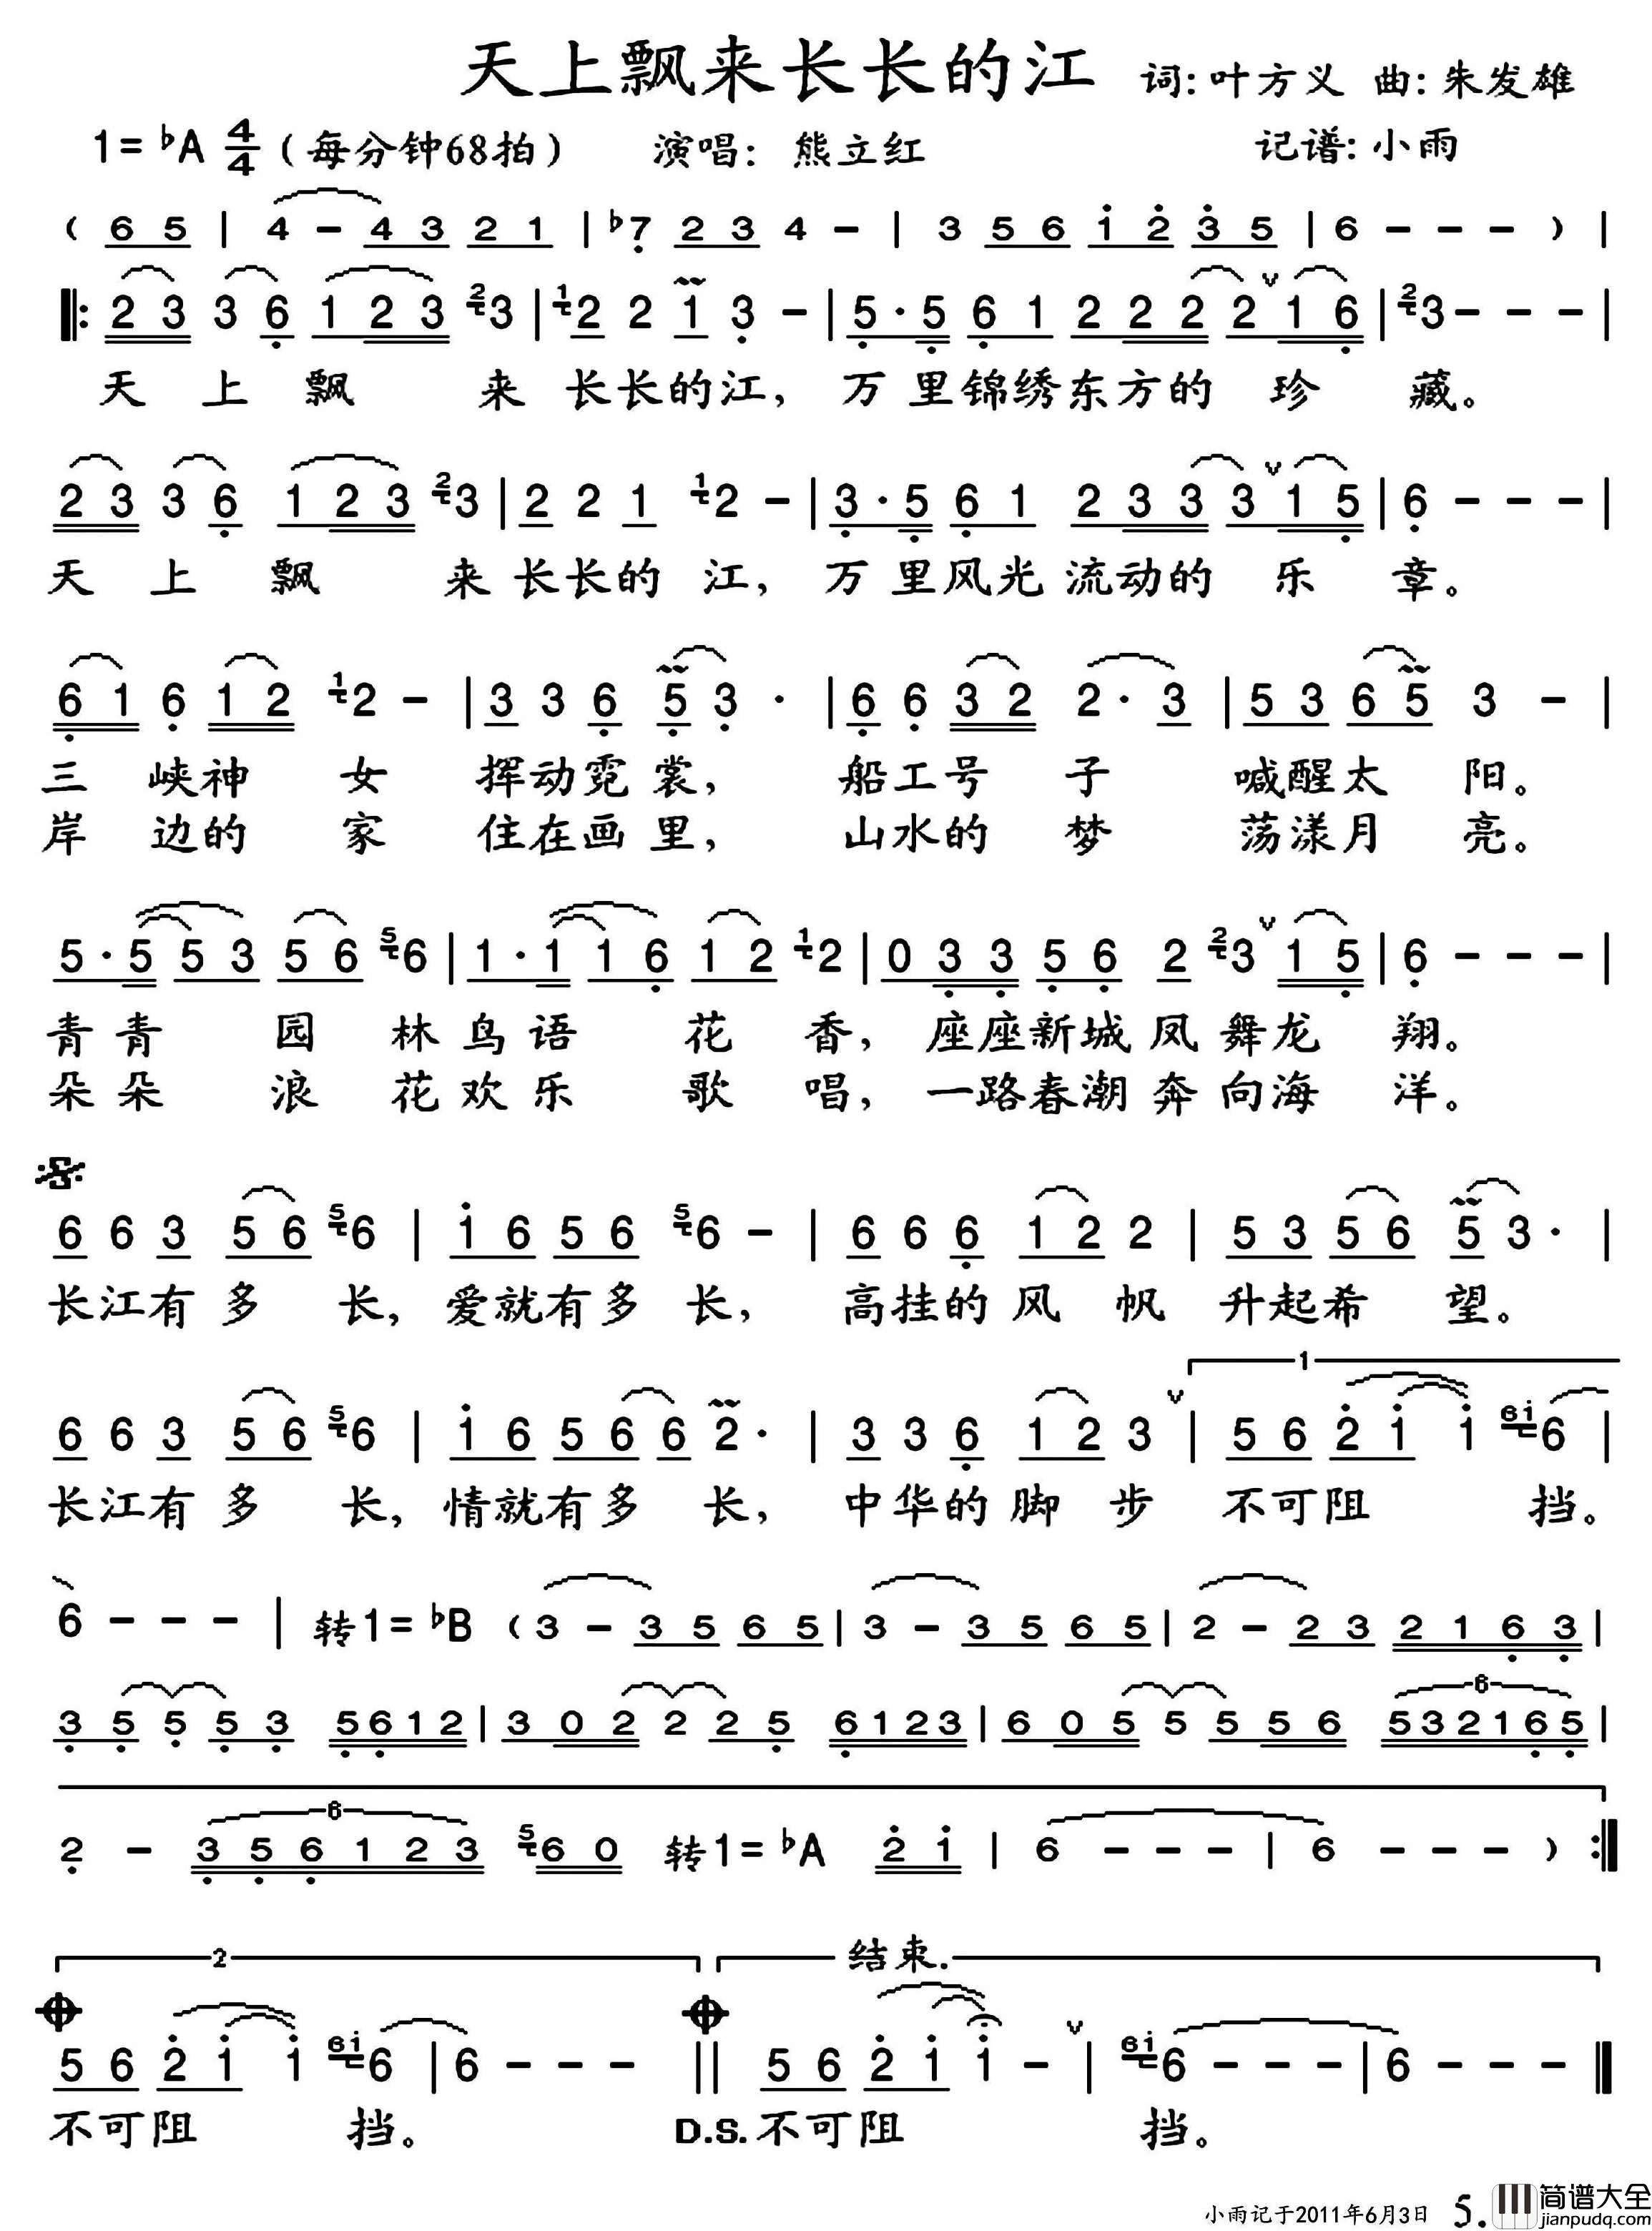 天上飘来长长的江 词: 叶方义 曲: 朱发雄
1= ♭A 4/4 (每分钟68拍) 演唱: 熊立红 记谱: 小雨
( 6 5 | 4 – 4 3 2 1 | ♭7 2 3 4 – | 3 5 6 1 2 3 5 | 6 – – – ) |
2 3 3 6 1 2 3 2 3 | 1 2 2 1 3 – | 5 · 5 6 1 2 2 2 2 v 1 6 | 2 3 – – – |
天 上 飘 来 长长的江, 万 里锦绣东方的 珍 藏。
2 3 3 6 1 2 3 2 3 | 2 2 1 1 2 – | 3 · 5 6 1 2 3 3 3 v 1 5 | 6 – – – |
天 上 飘 来 长长的 江, 万 里风光 流动的 乐 章。
6 1 6 1 2 1 2 – | 3 3 6 5 3 · | 6 6 3 2 2 · 3 | 5 3 6 5 3 – |
三 峡神 女 挥动霓 裳, 船工号 子 喊醒太 阳。
岸 边的 家 住在画 里, 山水的 梦 荡漾月 亮。
5 · 5 5 3 5 6 5 6 | 1 · 1 1 6 1 2 1 2 | 0 3 3 5 6 2 2 3 v 1 5 | 6 – – – |
青 青 园 林 鸟 语 花 香, 座座新城 凤 舞龙 翔。
朵 朵 浪 花 欢 乐 歌 唱, 一路春潮 奔 向海 洋。
6 6 3 5 6 5 6 | 1 6 5 6 5 6 – | 6 6 6 1 2 2 | 5 3 5 6 5 3 · |
长江有 多 长, 爱就有多 长, 高挂的 风 帆 升起希 望。
1
6 6 3 5 6 5 6 | 1 6 5 6 6 2 · | 3 3 6 1 2 3 v | 5 6 2 1 1 6 1 6 |
长江有 多 长, 情就有多 长, 中华的 脚 步 不可阻 挡。
6 – – – | 转1= ♭B ( 3 – 3 5 6 5 | 3 – 3 5 6 5 | 2 – 2 3 2 1 6 3 |
6
3 5 5 5 3 5 6 1 2 | 3 0 2 2 2 5 6 1 2 3 | 6 0 5 5 5 5 6 5 3 2 1 6 5 |
6
2 – 3 5 6 1 2 3 5 6 0 转1= ♭A 2 1 | 6 – – – | 6 – – – ) :
2 结束.
5 6 2 1 1 6 1 6 | 6 – – – || 5 6 2 1 1 – v | 6 1 6 – – – | 6 – – –
不可阻 挡。 D.S. 不可阻 挡。
小雨记于2011年6月3日 5.
简谱大全
jianpudq.com